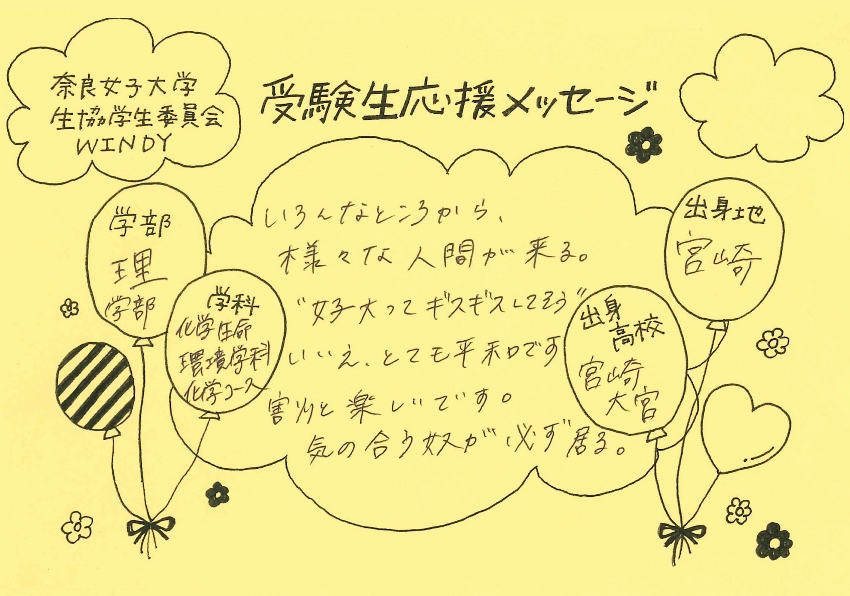 奈良女子大学
生協学生委員会
WINDY
受験生応援メッセージ
学部
理
学部
学科
化学生命
環境学科
化学コース
いろんなところから、
様々な人間が来る。
"女子大ってギスギスしてそう"
いいえ、とても平和です
割と楽しいです。
気の合う奴が必ず居る。
出身地
宮崎
出身
高校
宮崎
大宮